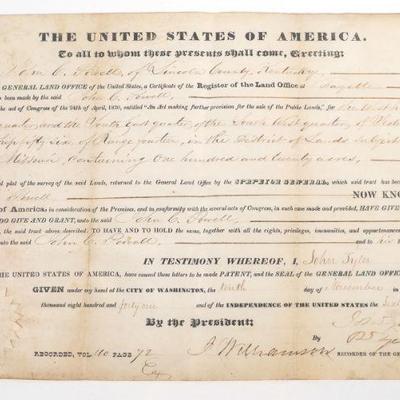 THE UNITED STATES OF AMERICA.
To all to whom these presents shall come, Greeting:
John C. Powell, of Lincoln County, Kentucky,
GENERAL LAND OFFICE of the United States, a Certificate of the Register of the Land Office at Fayette
been made by the said John C. Powell
act of Congress of the 24th of April, 1820, entitled "An Act making further provision for the sale of the Public Lands," for
quarter, and the South East quarter, of the South West quarter, of
fifty Six, of Range fourteen, in the District of Lands Subject
Missouri, Containing One hundred and twenty acres,
plat of the survey of the said Lands, returned to the General Land Office by the SURVEYOR GENERAL, which said tract has been
Powell
NOW KNO
of America, in consideration of the Premises, and in conformity with the several acts of Congress, in such case made and provided, HAVE GIVE
DO GIVE AND GRANT, unto the said John C. Powell
the said tract above described: TO HAVE AND TO HOLD the same, together with all the rights, privileges, immunities, and appurtenances
unto the said John C. Powell and to his
IN TESTIMONY WHEREOF, I, John Tyler
THE UNITED STATES OF AMERICA, have caused these letters to be made PATENT, and the SEAL of the GENERAL LAND OFFIC
GIVEN under my hand at the CITY OF WASHINGTON, the tenth day of November in
thousand eight hundred and forty one and of the INDEPENDENCE OF THE UNITED STATES the Six
By the President:
By
J. Williamson RECORDER OF THE GENER
RECORDED, VOL. 10 PAGE 72